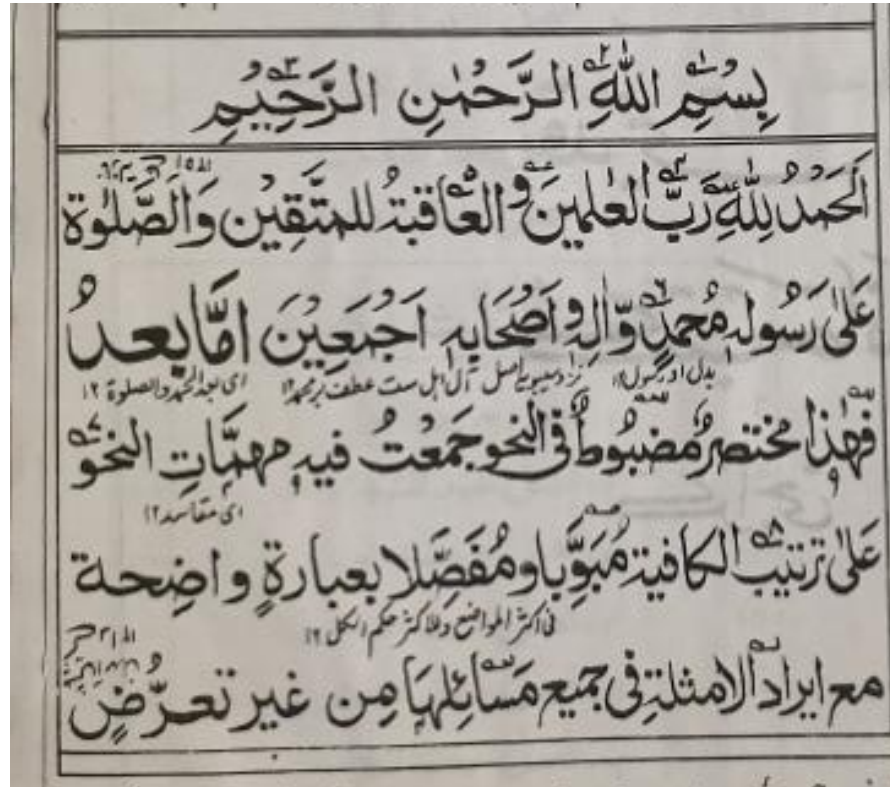 بِسْمِ اللهِ الرَّحْمٰنِ الرَّحِيْمِ
اَلْحَمْدُ لِلّٰهِ رَبِّ الْعٰلَمِيْنَ وَالْعَاقِبَةُ لِلْمُتَّقِيْنَ وَالصَّلٰوةُ
عَلٰى رَسُوْلِهٖ مُحَمَّدٍ وَّاٰلِهٖ وَاَصْحَابِهٖ اَجْمَعِيْنَ اَمَّا بَعْدُ
بدل از رسول ۱۲ اصل آل اہل ست عطف بر محمد ۱۲ ای بعد الحمد والصلوة ۱۲
فَهٰذَا مُخْتَصَرٌ مَّضْبُوْطٌ فِى النَّحْوِ جَمَعْتُ فِيْهِ مُهِمَّاتِ النَّحْوِ
ای مقاصد ۱۲
عَلٰى تَرْتِيْبِ الْكَافِيَةِ مُبَوِّبًا وَمُفَصِّلًا بِعِبَارَةٍ وَاضِحَةٍ
فی اکثر المواضع وللاکثر حکم الکل ۱۲
مَعَ اِيْرَادِ الْاَمْثِلَةِ فِىْ جَمِيْعِ مَسَائِلِهَا مِنْ غَيْرِ تَعَرُّضٍ